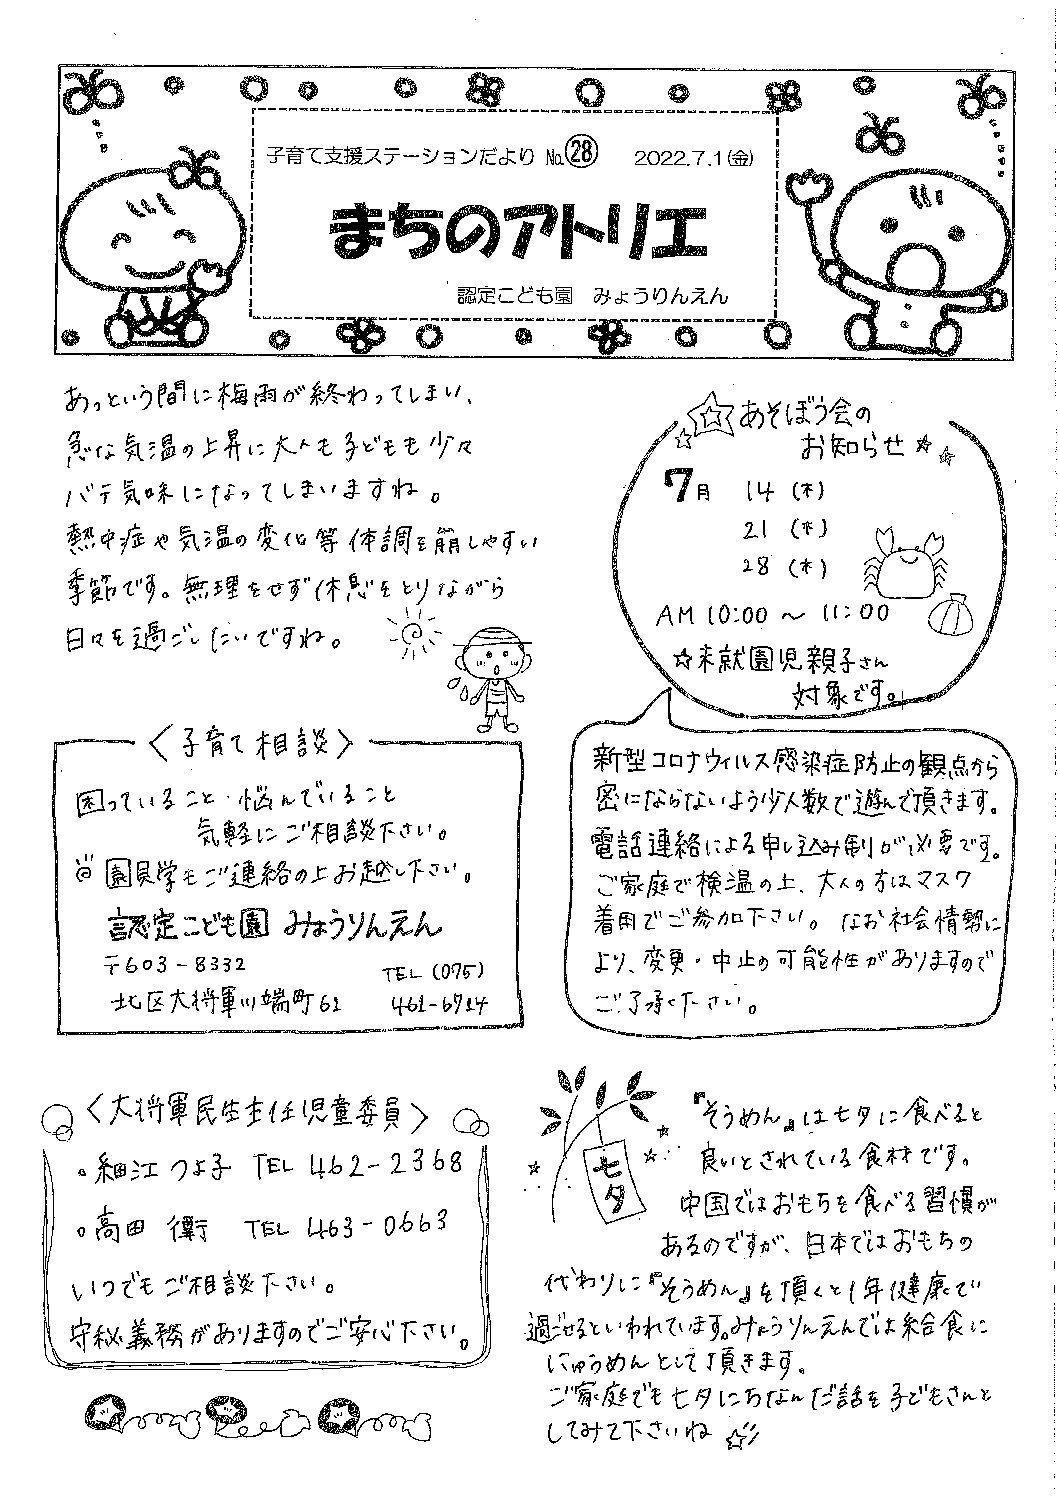 子育て支援ステーションだより No.㉘ 2022.7.1(金)
まちのアトリエ
認定こども園 みょうりんえん
あっという間に梅雨が終わってしまい、
急な気温の上昇に大人も子どもも少々
バテ気味になってしまいますね。
熱中症や気温の変化等 体調を崩しやすい
季節です。無理をせず休息をとりながら
日々を過ごしたいですね。
☆あそぼう会の
お知らせ☆☆
7月 14 (木)
21 (木)
28 (木)
AM 10:00 ～ 11:00
☆未就園児親子さん
対象です。
新型コロナウィルス感染症防止の観点から
密にならないよう少人数で遊んで頂きます。
電話連絡による申し込み制が必要です。
ご家庭で検温の上、大人の方はマスク
着用でご参加下さい。 なお社会情勢に
より、変更・中止の可能性がありますので
ご了承下さい。
〈子育て相談〉
困っていること・悩んでいること
気軽にご相談下さい。
園見学もご連絡の上お越し下さい。
認定こども園 みょうりんえん
〒603-8332
TEL (075)
北区大将軍川端町61
461-6714
〈大将軍民生主任児童委員〉
。細江 つよ子 TEL 462-2368
。高田 衛 TEL 463-0663
いつでもご相談下さい。
守秘義務がありますのでご安心下さい。
七夕
『そうめん』は七夕に食べると
良いとされている食材です。
中国ではおもちを食べる習慣が
あるのですが、日本ではおもちの
代わりに『そうめん』を頂くと1年健康で
過ごせるといわれています。みょうりんえんでは給食に
にゅうめんとして頂きます。
ご家庭でも七夕にちなんだ話を子どもさんと
してみて下さいね☆